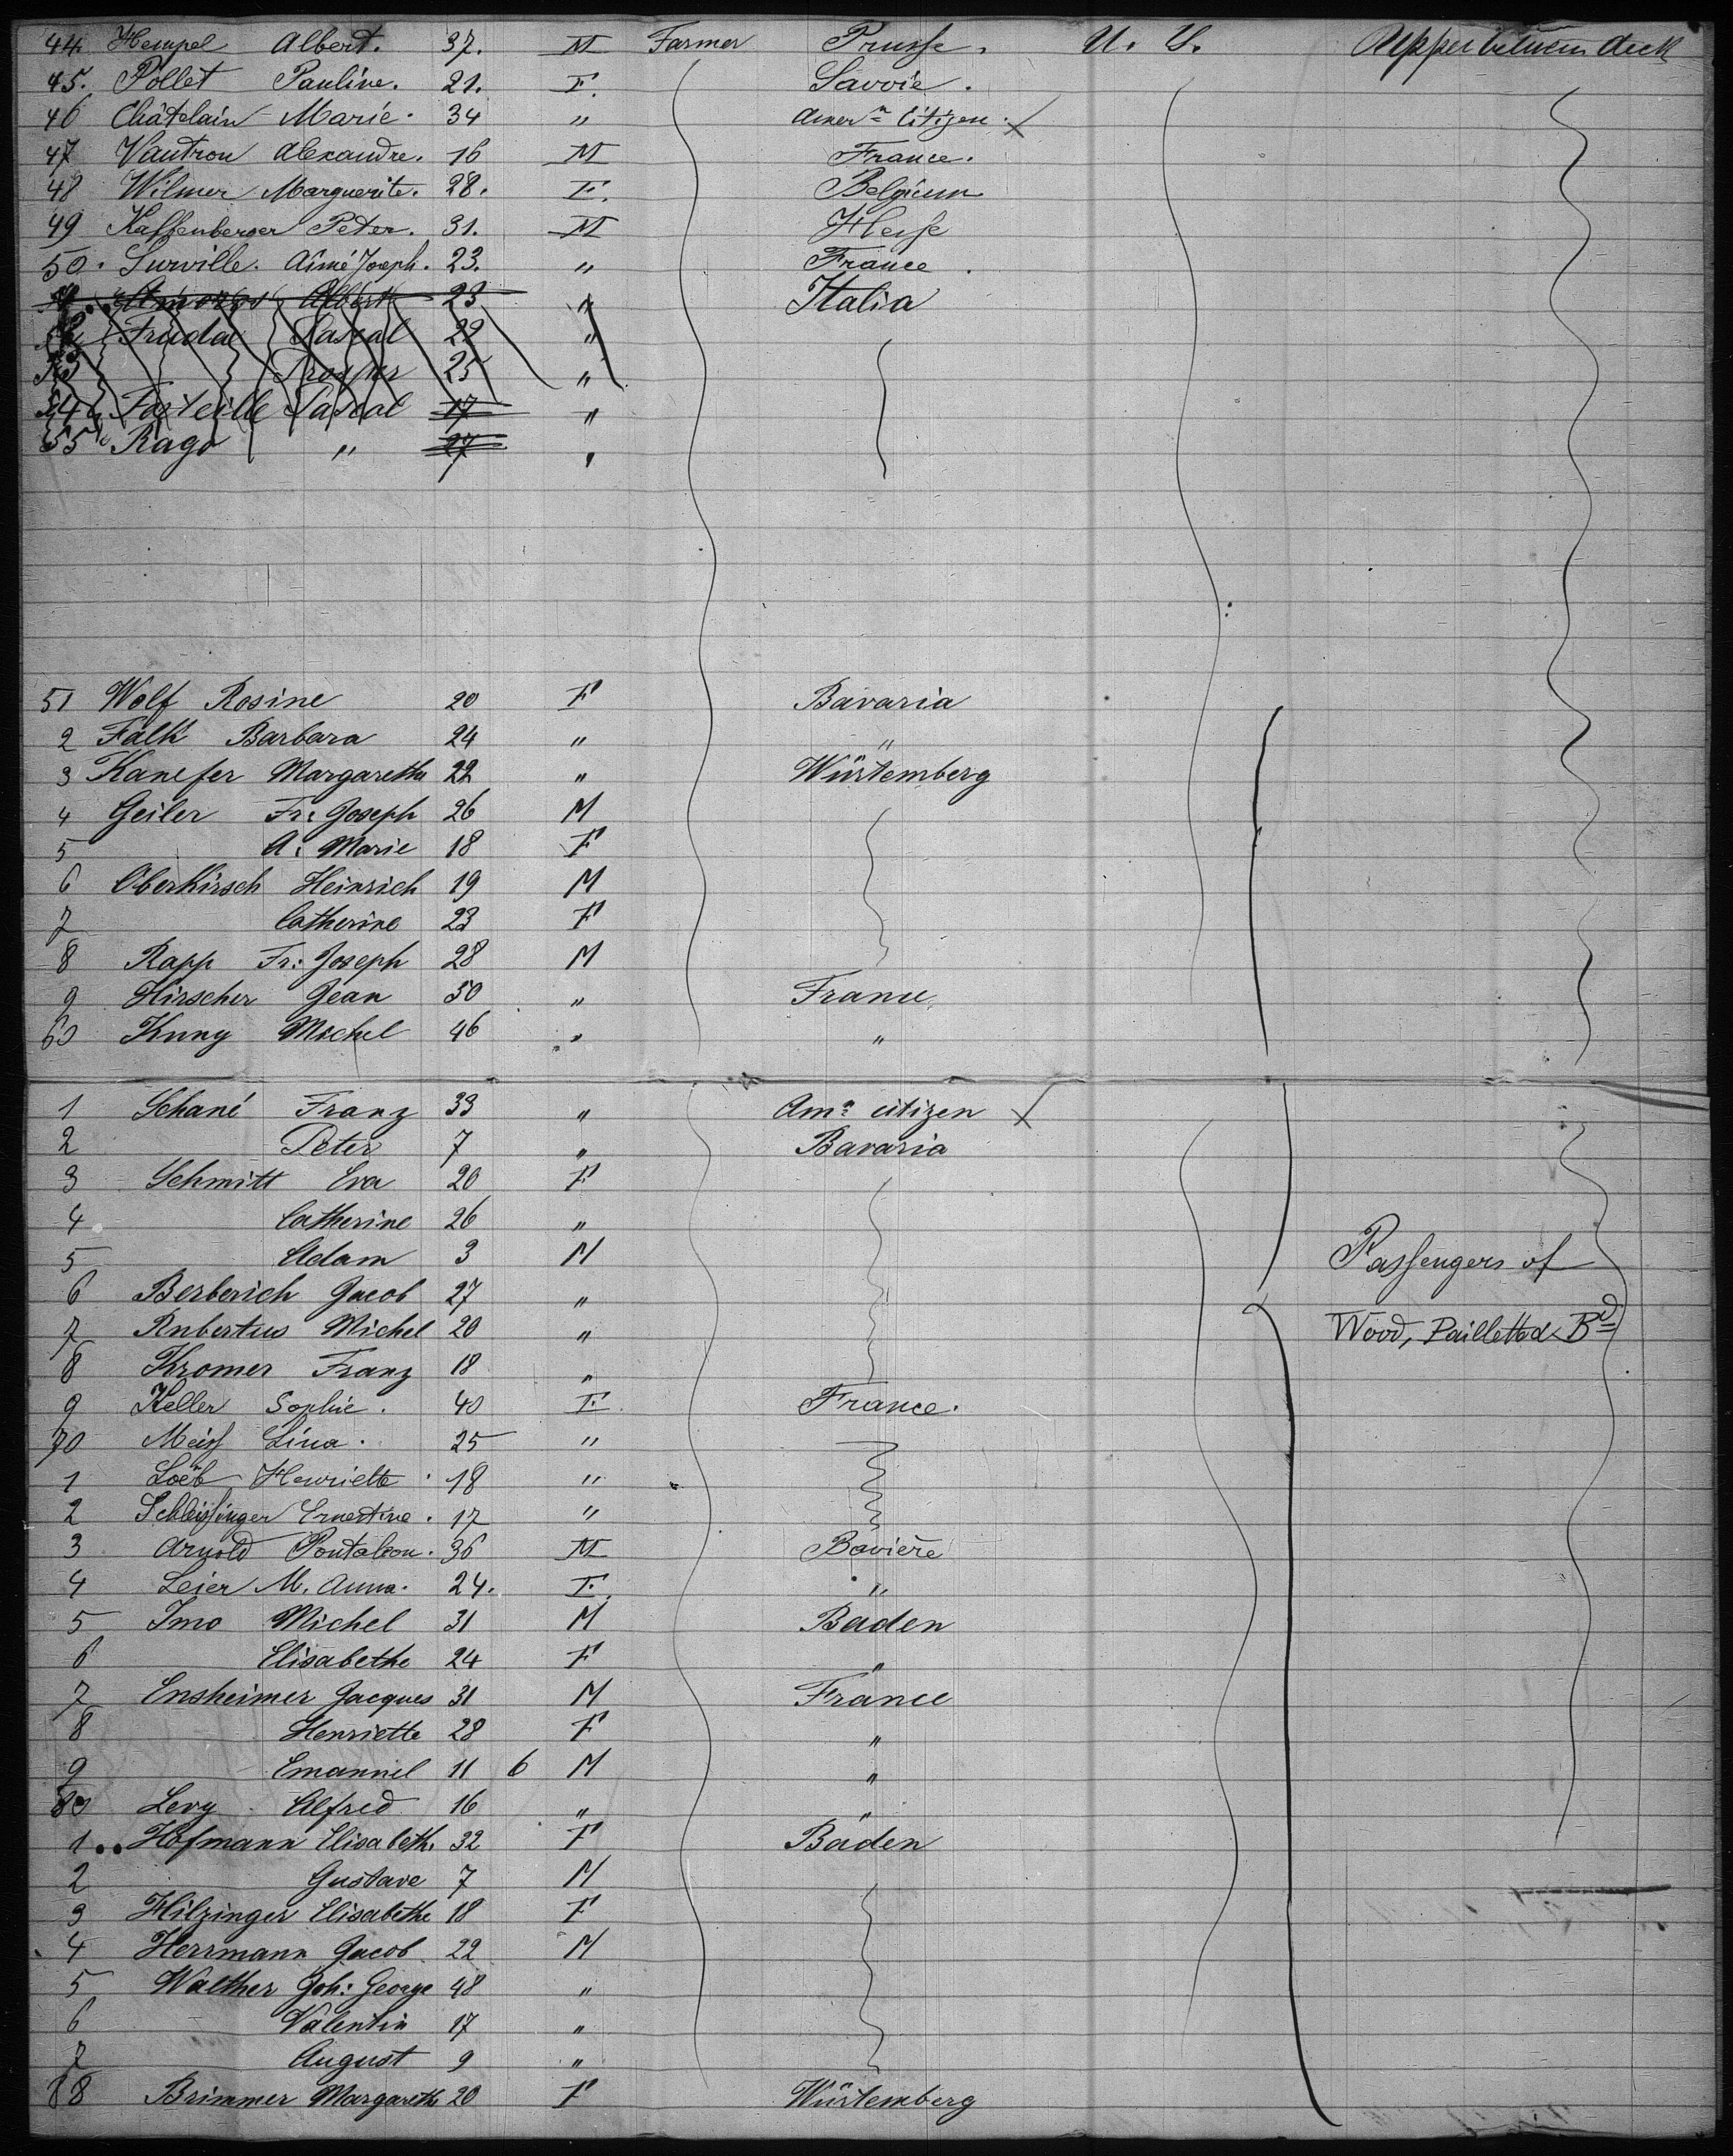 44. Hempel Albert. 37. M Farmer Prusse. U. S. Upper between deck
45. Pollet Pauline. 21. F. Savoie.
46 Châtelain Marie. 34 " Amer<sup>n</sup> Citizen. X
47 Vautron Alexandre. 16 M France.
48 Wilmer Marguerite. 28. F. Belgium
49 Kaffenberger Peter. 31. M Hesse
50. Surville. Aimé Joseph. 23. " France.
Albert 23 " Italia
Fruda Pascal 22 "
53 Prosper 25 "
54 Pascal 17 "
55 Rago " 27 "
51 Wolf Rosine 20 F Bavaria
2 Falk Barbara 24 " "
3 Kanefer Margaretha 22 " Würtemberg
4 Geiler Fr: Joseph 26 M
5 A: Marie 18 F
6 Oberkirsch Heinrich 19 M
7 Catherine 23 F
8 Rapp Fr: Joseph 28 M
9 Hirscher Jean 50 " France
60 Kuny Michel 46 " "
1 Schané Franz 33 " Am<sup>n</sup> citizen X
2 Peter 7 " Bavaria
3 Schmitt Eva 20 F
4 Catherine 26 "
5 Adam 3 M Passengers of
6 Berberich Jacob 27 "
7 Rubertus Michel 20 " Wood, Paillette & B<sup>d</sup>
8 Kromer Franz 18 "
9 Keller Sophie. 40 F. France.
70 Meiss Lina. 25 "
1 Loeb Henriette. 18 "
2 Schleissinger Ernestine. 17 "
3 Arnold Pantaleon. 36 M Bavière
4 Leier M. Anna. 24. F. "
5 Imo Michel 31 M Baden
6 Elisabethe 24 F "
7 Ensheimer Jacques 31 M France
8 Henriette 28 F "
9 Emanuel 11 6 M "
80 Levy Alfred 16 " "
1.. Hofmann Elisabeth. 32 F Baden
2 Gustave 7 M
3 Hilzinger Elisabethe 18 F
4 Herrmann Jacob 22 M
5 Walther Joh: George 48 "
6 Valentin 17 "
7 August 9 "
88 Brimmer Margareth 20 F Würtemberg